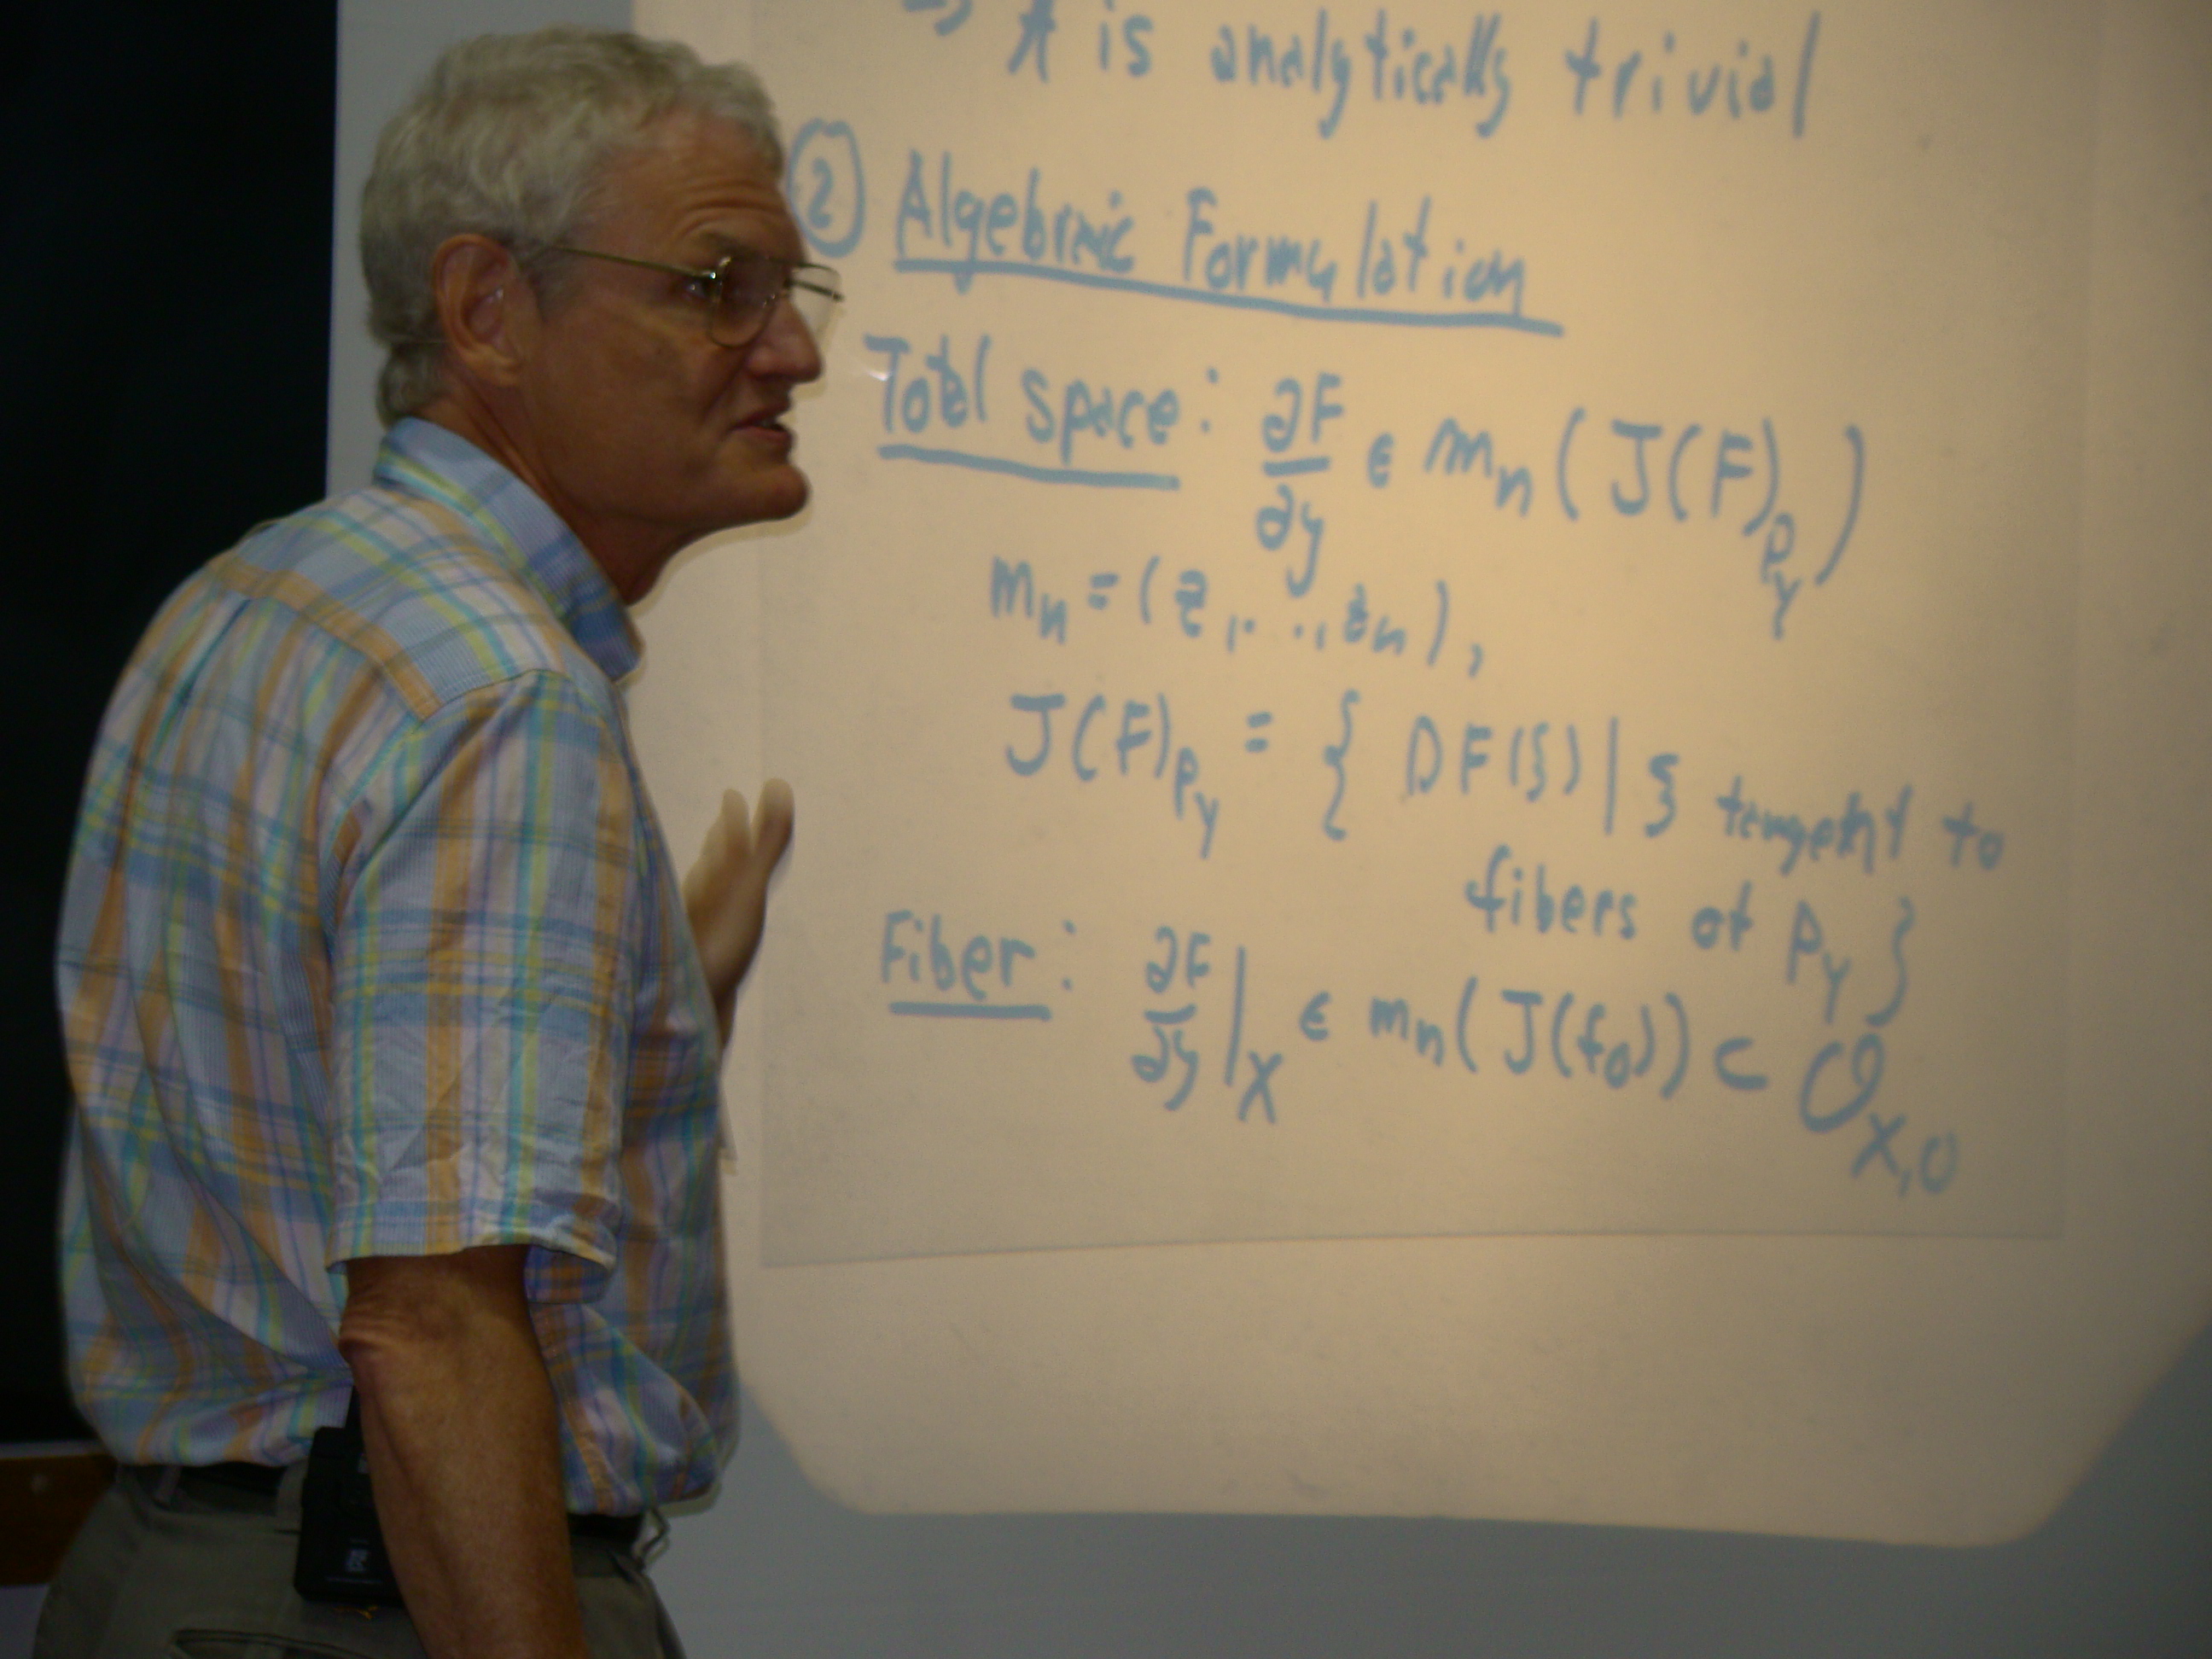 ⇒ X is analytically trivial
② Algebraic Formulation
Total space: ∂F/∂y ∈ m_n (J(F)_{P_Y})
m_n = (z_1, ..., z_n),
J(F)_{P_Y} = { DF(ξ) | ξ tangent to
fibers of P_Y }
Fiber: ∂F/∂y |_X ∈ m_n (J(f_0)) ⊂ O_{X,0}